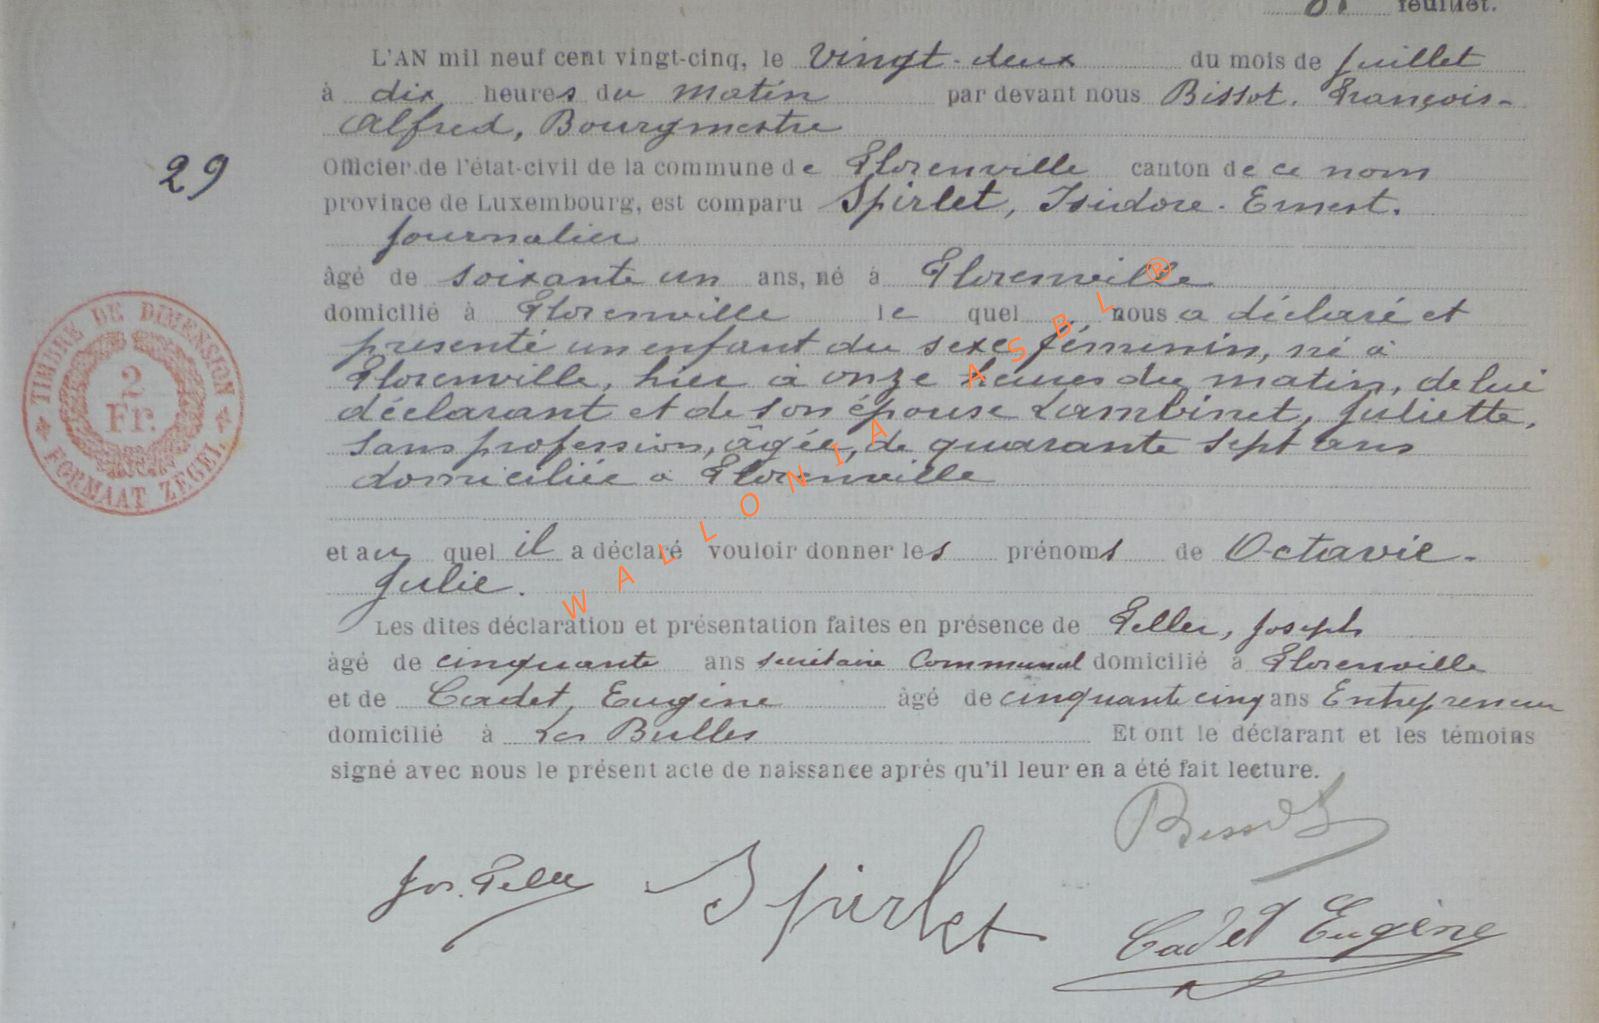 feuillet.
L'AN mil neuf cent vingt-cinq, le vingt-deux du mois de Juillet
à dix heures du matin par devant nous Bissot. François-
Alfred, Bourgmestre
29
Officier de l'état-civil de la commune de Florenville canton de ce nom
province de Luxembourg, est comparu Spirlet, Isidore-Ernest.
journalier
âgé de soixante un ans, né à Florenville
domicilié à Florenville le quel nous a déclaré et
présenté un enfant du sexe féminin, né à
Florenville, hier à onze heures du matin, de lui
déclarant et de son épouse Lambinet, Juliette,
sans profession, âgée, de quarante sept ans
domiciliée à Florenville
et au quel il a déclaré vouloir donner les prénoms de Octavie-
Julie.
Les dites déclaration et présentation faites en présence de Peller, Joseph
âgé de cinquante ans secrétaire Communal domicilié à Florenville
et de Cadet, Eugène âgé de cinquante cinq ans Entrepreneur
domicilié à Les Bulles Et ont le déclarant et les témoins
signé avec nous le présent acte de naissance après qu'il leur en a été fait lecture.
Bissot
Jos. Peller Spirlet
Cadet Eugène
TIMBRE DE DIMENSION
2
Fr.
FORMAAT ZEGEL
WALLONIA ASBL ®